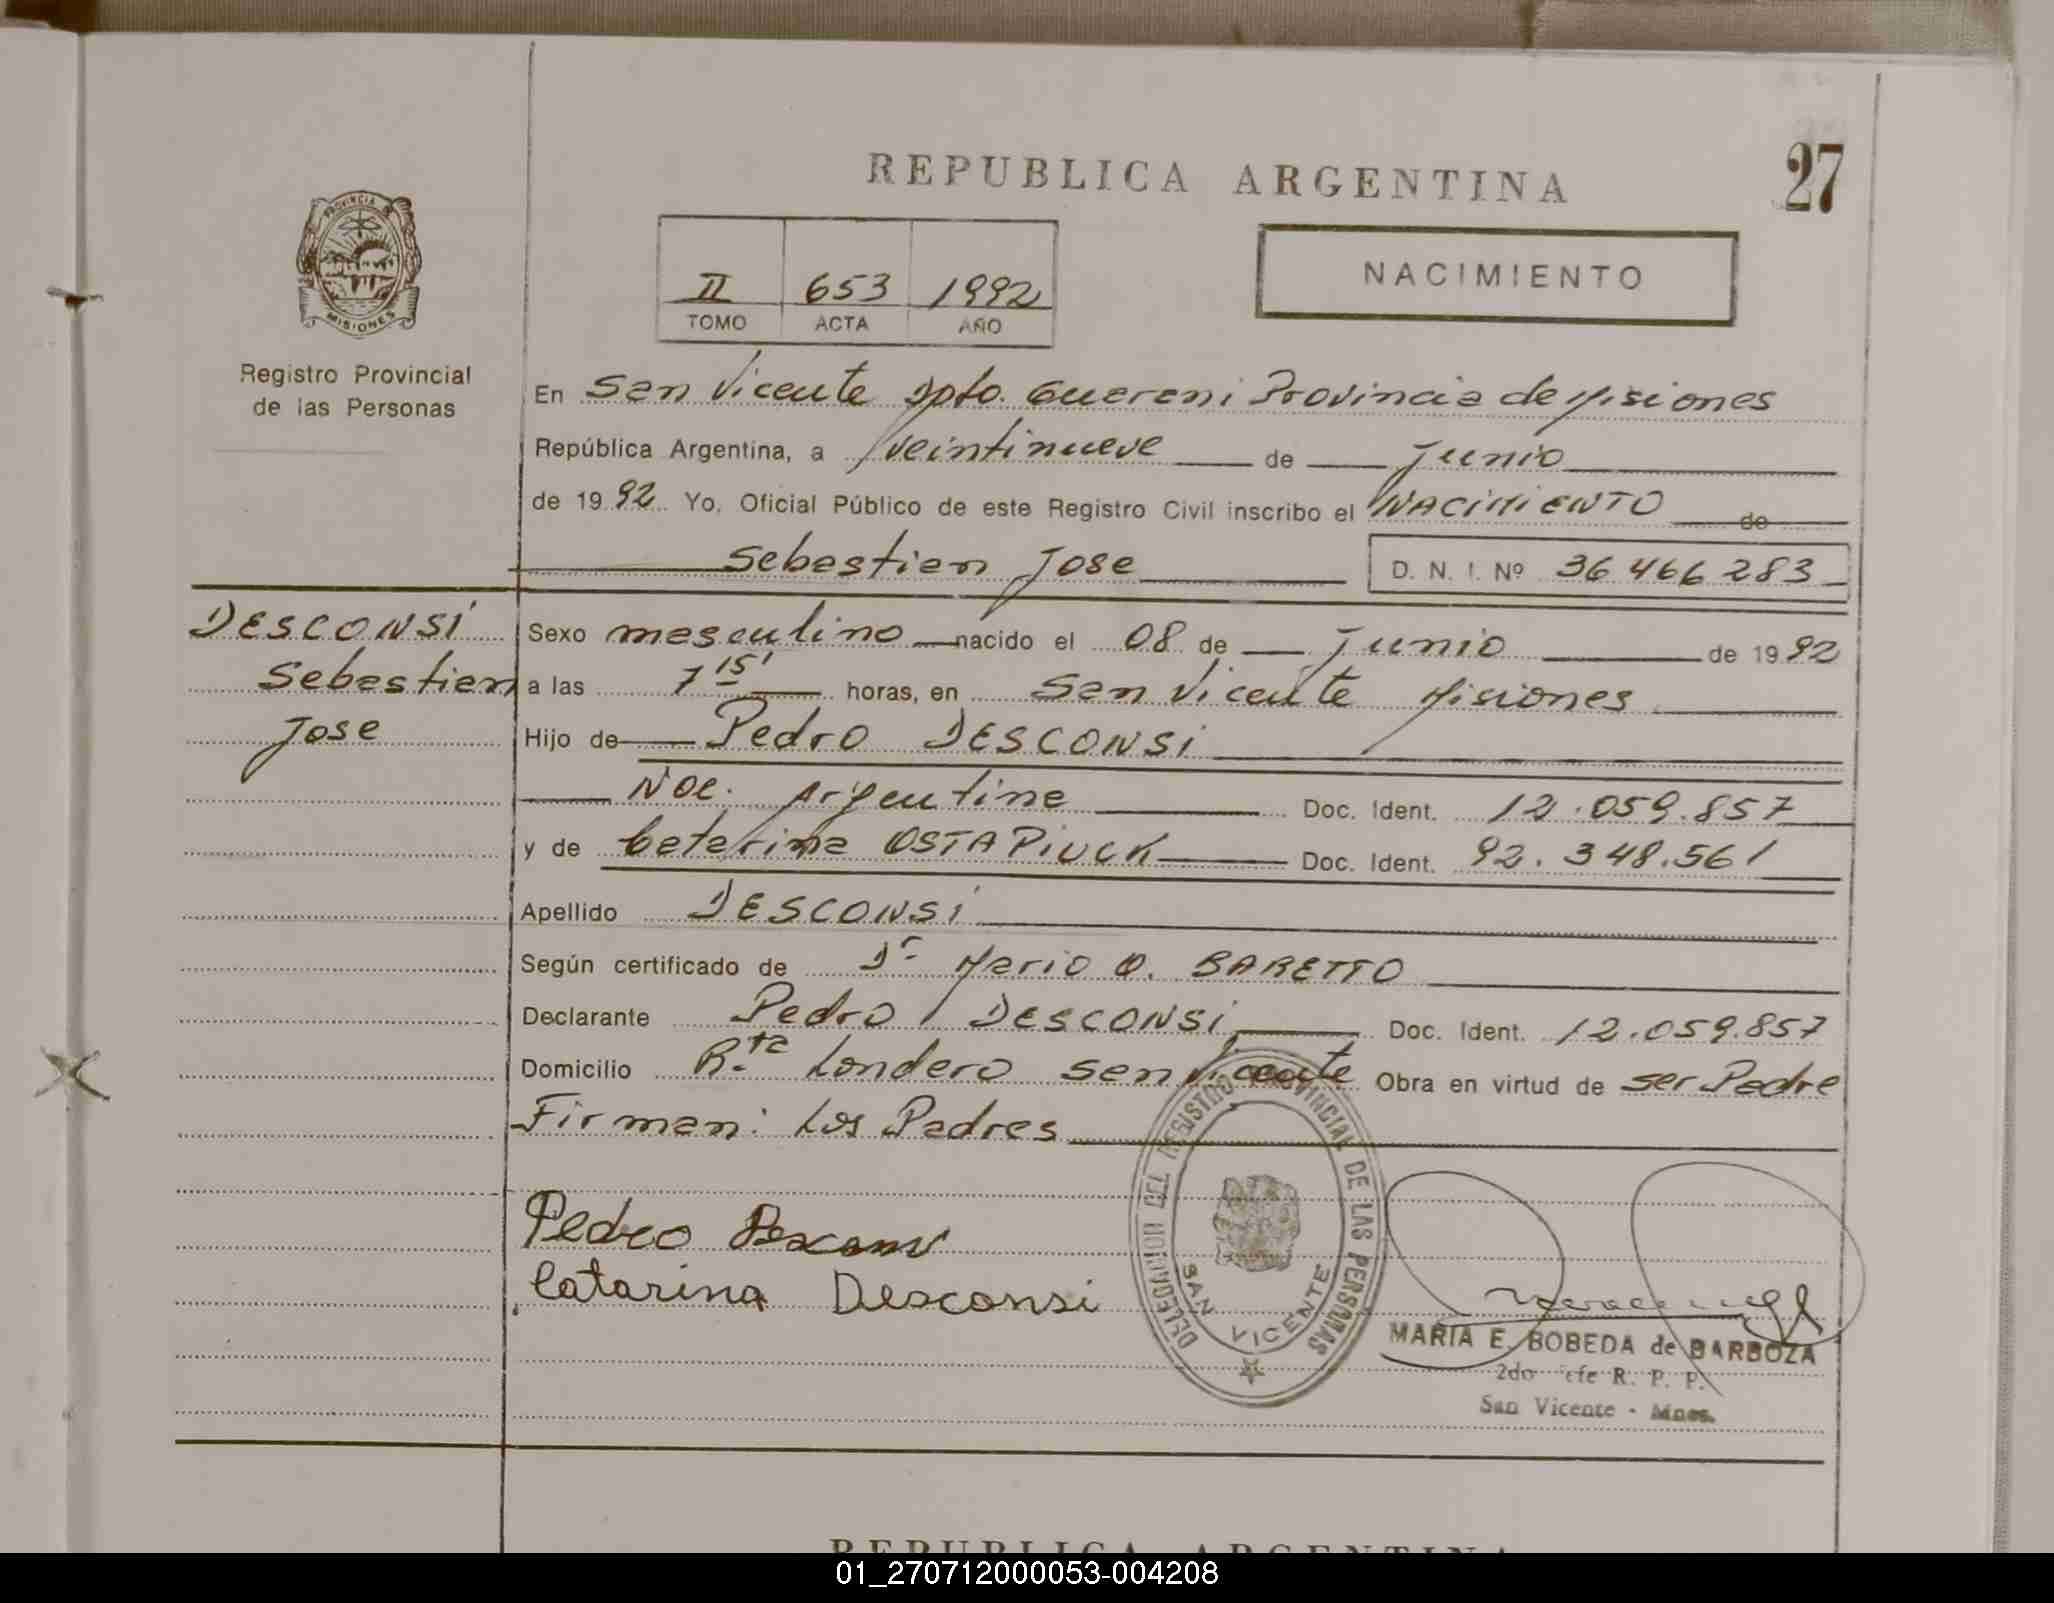 REPUBLICA ARGENTINA
27
PROVINCIA
MISIONES
Registro Provincial
de las Personas
II 653 1992
TOMO ACTA AÑO
NACIMIENTO
En San Vicente Dpto. Guarani Provincia de Misiones
República Argentina, a veintinueve de Junio
de 1992 Yo, Oficial Público de este Registro Civil inscribo el NACIMIENTO de
Sebastian Jose D. N. I. Nº 36 466 283
DESCONSI
Sebastian
Jose
Sexo masculino nacido el 08 de Junio de 1992
a las 7 15' horas, en San Vicente Misiones
Hijo de Pedro DESCONSI
Nac. Argentina Doc. Ident. 12.059.857
y de Catarina OSTAPIUCK Doc. Ident. 92.348.561
Apellido DESCONSI
Según certificado de Dr Mario O. BARETTO
Declarante Pedro DESCONSI Doc. Ident. 12.059.857
Domicilio R.ta Londero San Vicente Obra en virtud de ser Padre
Firman: Los Padres
Pedro
Catarina Desconsi
DELEGACION DEL REGISTRO PROVINCIAL DE LAS PERSONAS
SAN VICENTE
MARIA E. BOBEDA de BARBOZA
2do R. P. P.
San Vicente - Mnes.
REPUBLICA ARGENTINA
01_270712000053-004208